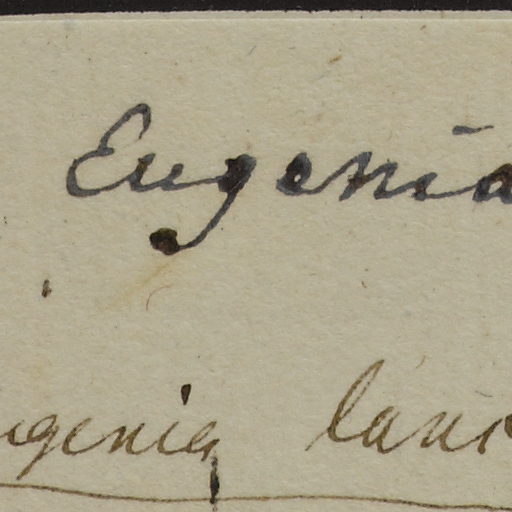 Eugenia
ugenia lanc